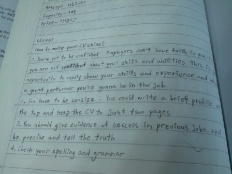 How to make your CV shine!
1. Dont get to be confident. Employers won't have faith in you if
you are not confident about your skills and abilities. This is
opportunity to really show your skills and experience and to
a great performer you're gonna be in the job
2. You have to be concise. You could write a brief profile at
the top and keep the CV to Just two pages
3. You should give evidence of success in previous Jobs, and
be precise and tell the truth
4. Check your spelling and grammar